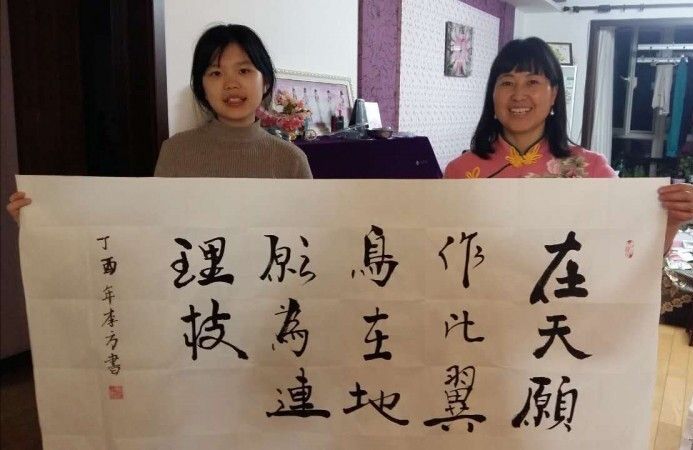 在天願
作比翼
鳥在地
願為連
理枝
丁酉年李方書